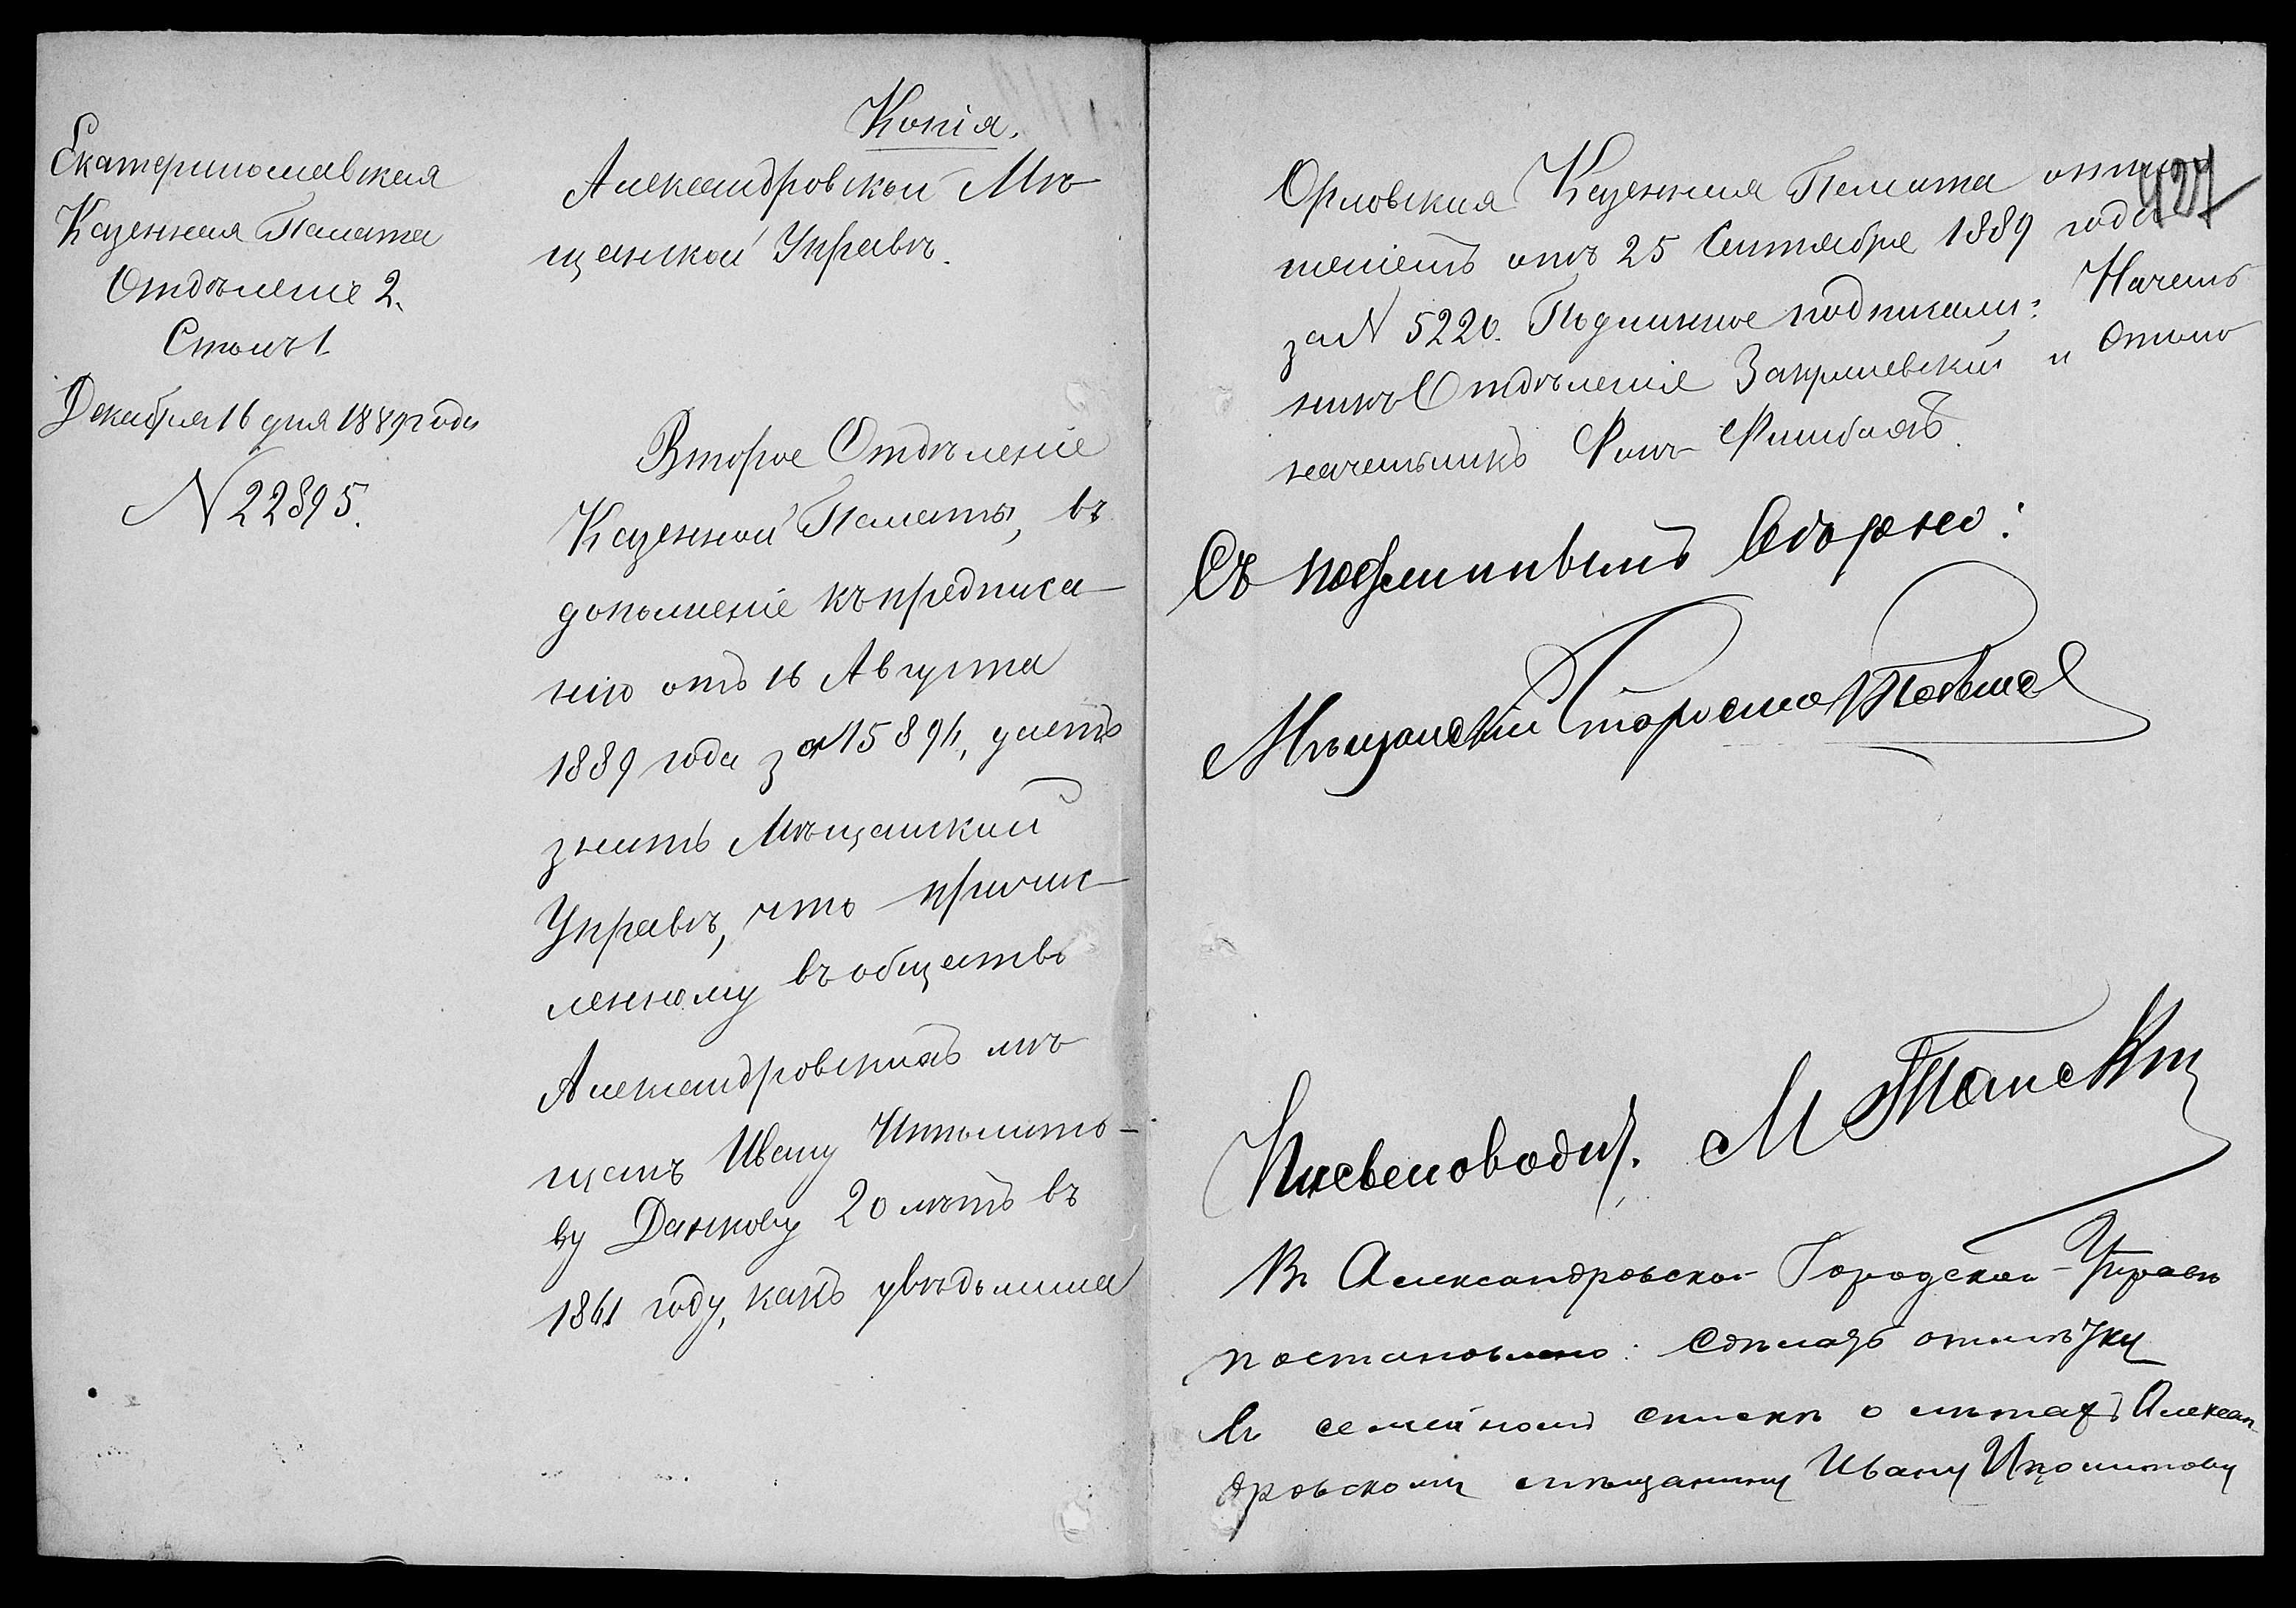 Копія.
Екатеринославская
Казенная Палата
Отдѣленіе 2.
Столъ 1
Декабря 16 дня 1889 года
N 22895.
Александровской Мѣ-
щанской Управѣ.
Второе Отдѣленіе
Казенной Палаты, въ
дополненіе къ предписа-
нію отъ 16 Августа
1889 года за N 15894, даетъ
знать Мѣщанской
Управѣ, что причис-
ленному въ общество
Александровскихъ мѣ-
щанъ Ивану Ипполито-
ву Данкову 20 лѣтъ въ
1861 году, какъ увѣдомила
427
Орловская Казенная Палата отно-
шеніемъ отъ 25 Сентября 1889 года
за N 5220. Подлинное подписали: Началь-
никъ Отдѣленія Закршевскій и Столо-
начальникъ Фонъ-
Съ подлиннымъ вѣрно:
Мѣщанскій Староста
Письмоводит. М
Въ Александровской Городской Управѣ
постановлено: Сдѣлать отмѣтку
въ семейномъ спискѣ о лѣтахъ Алексан-
дровскому мѣщанину Ивану Иполитову